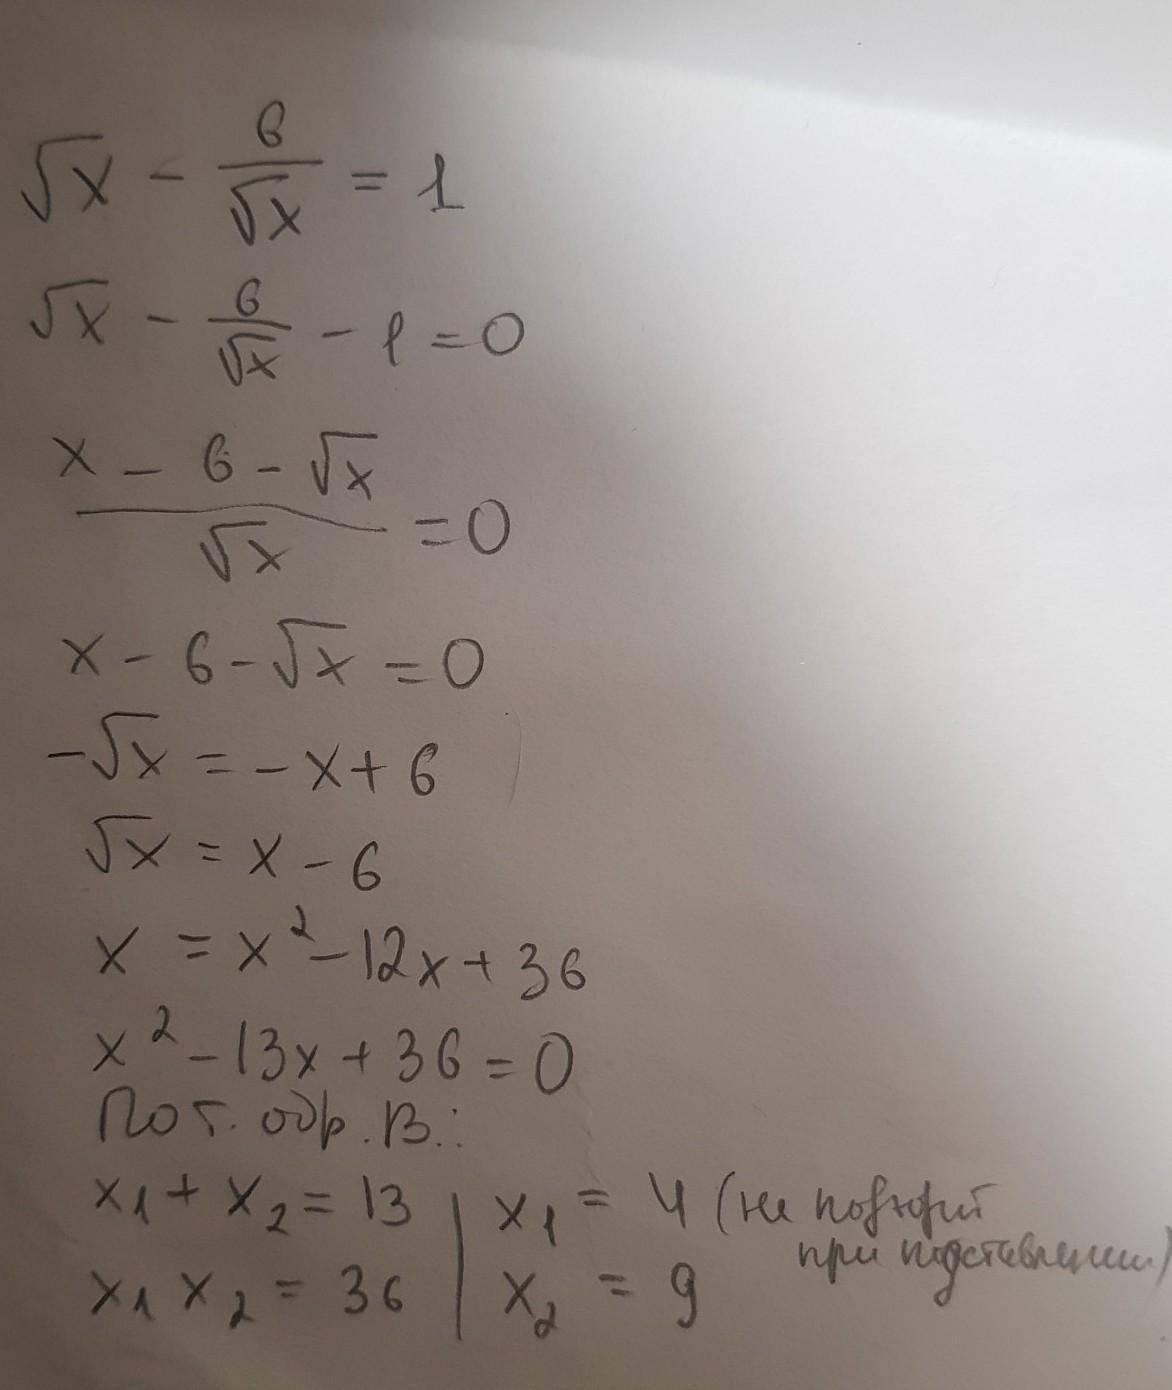 √x - 6/√x = 1
√x - 6/√x - 1 = 0
(x - 6 - √x)/√x = 0
x - 6 - √x = 0
-√x = -x + 6
√x = x - 6
x = x² - 12x + 36
x² - 13x + 36 = 0
По т. обр. В.:
x₁ + x₂ = 13 | x₁ = 4 (не
при подставлении)
x₁ x₂ = 36 | x₂ = 9